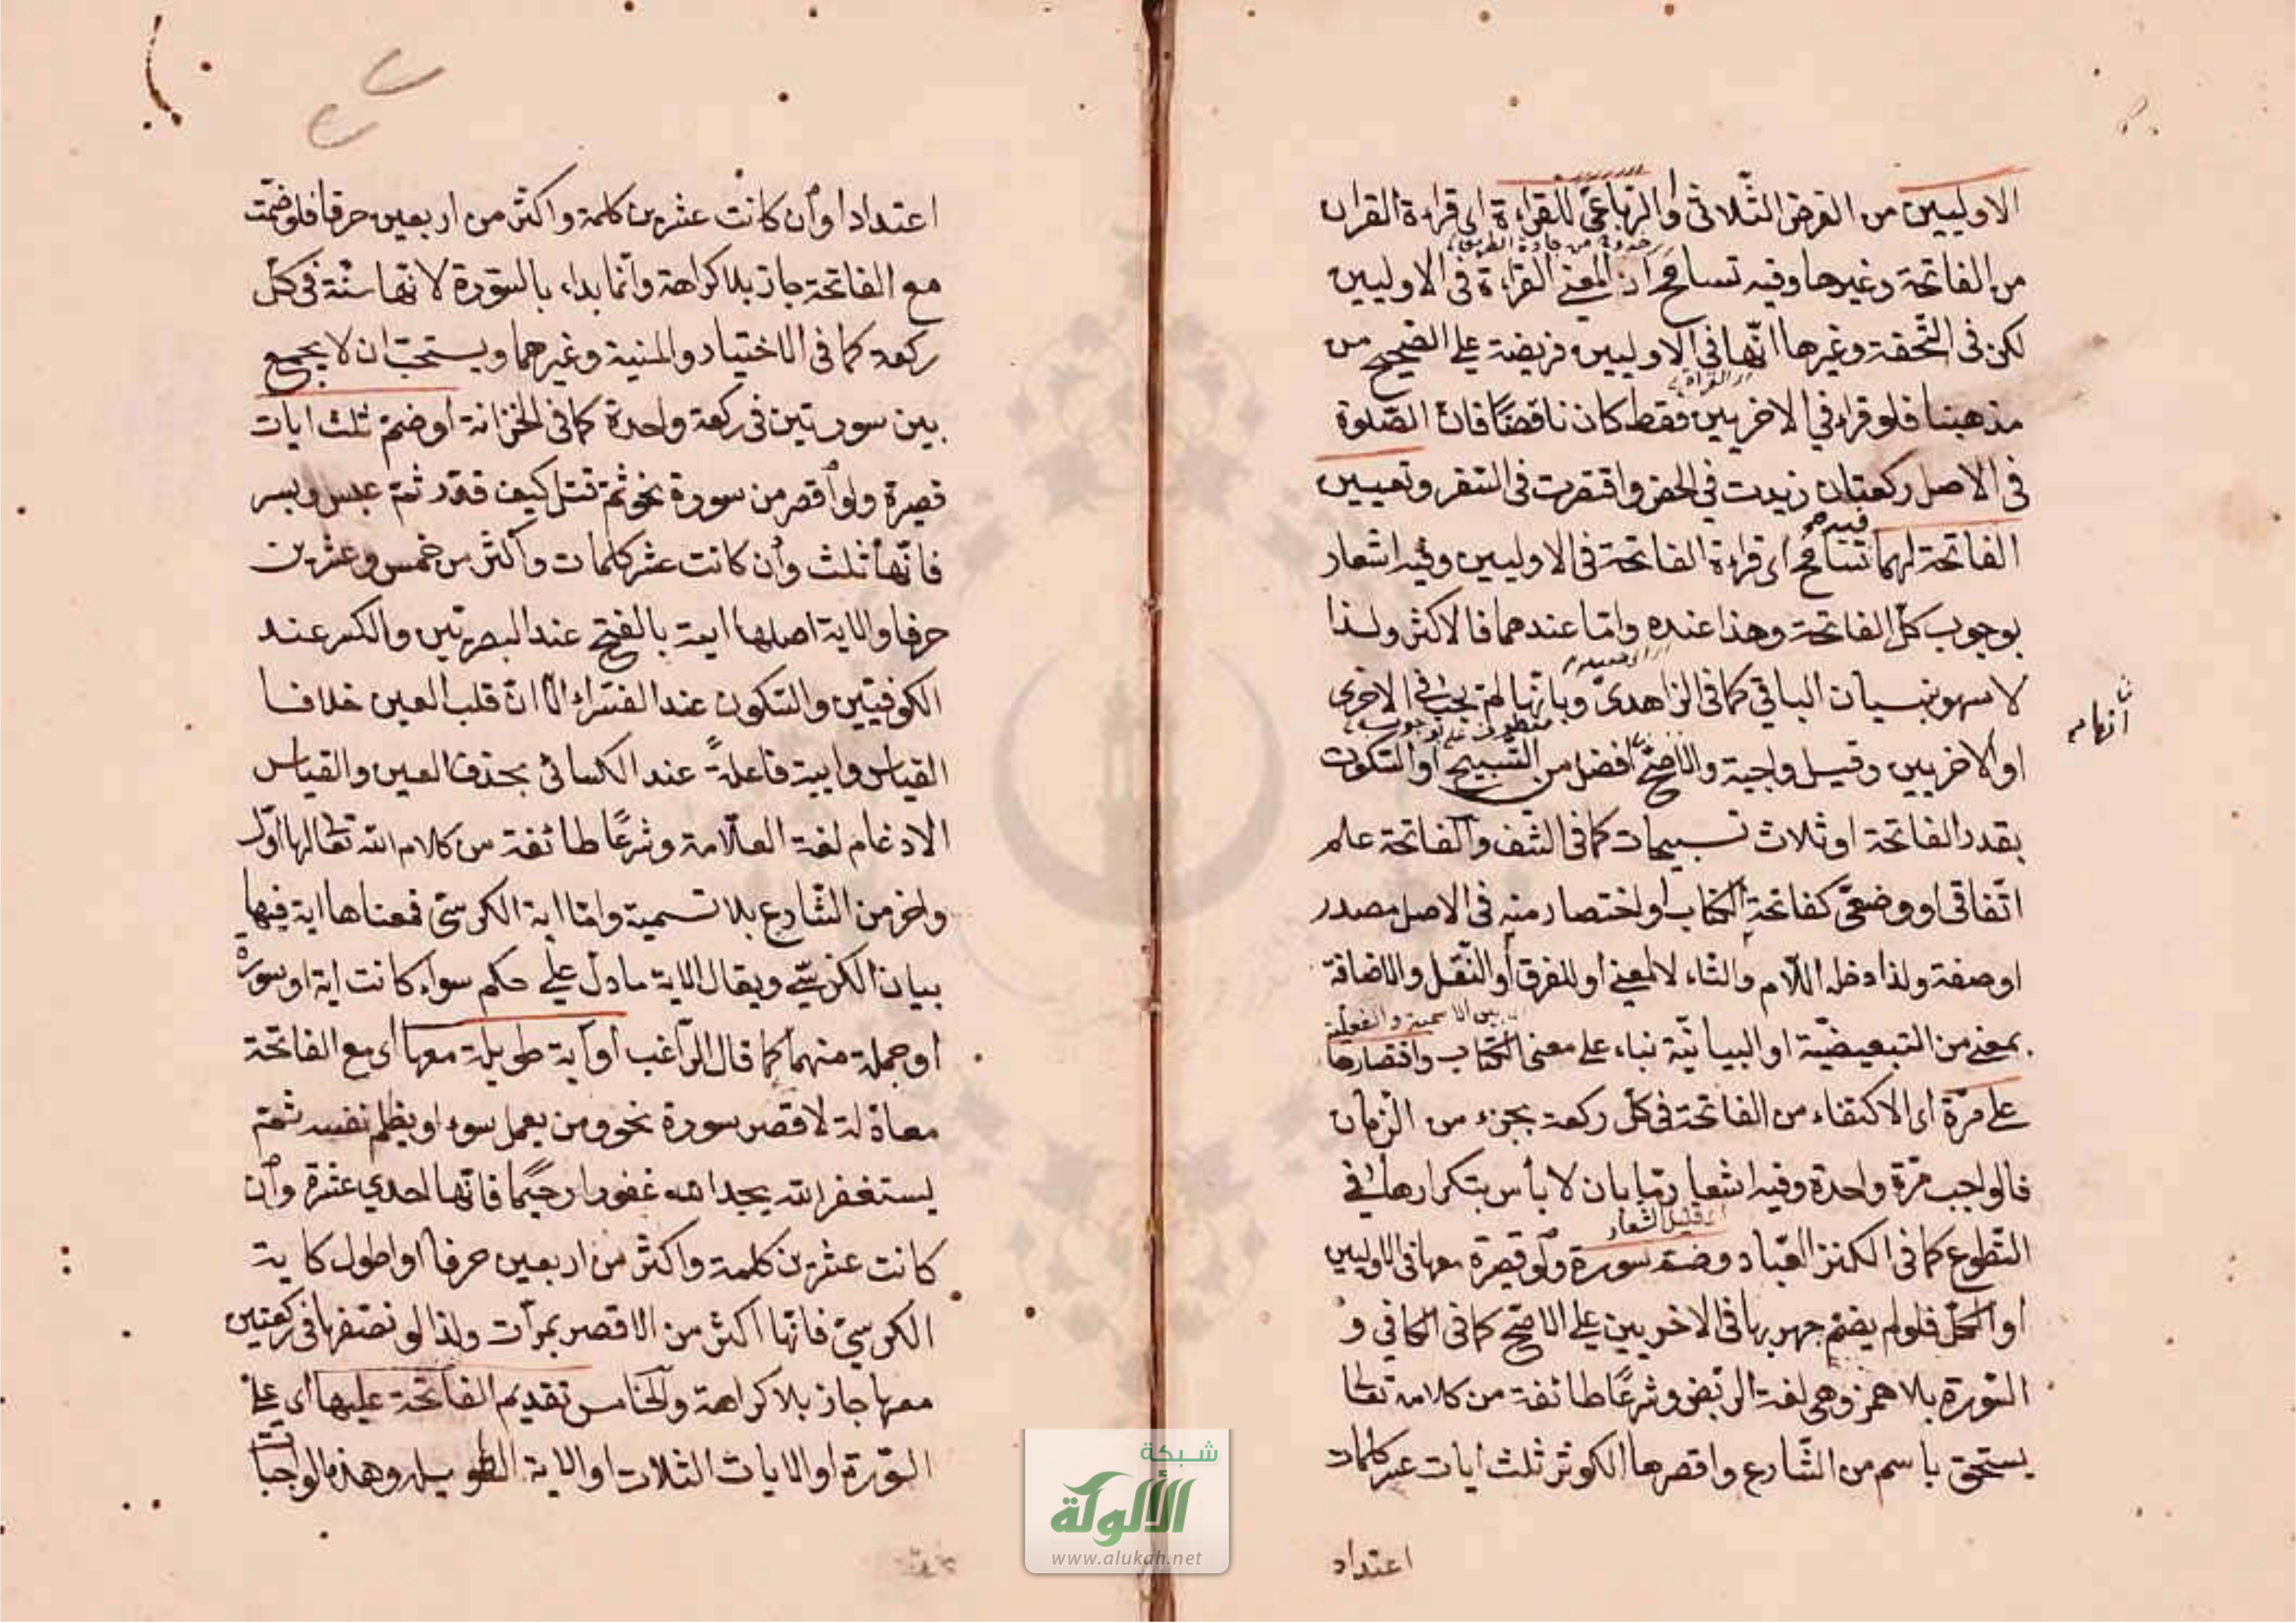 الاوليين من الفرض الثلاثى والرباعى للقراءة اى قراءة القران
من الفاتحة وغيرها وفيه تسامح اذ المعنى القراءة فى الاوليين
لكن فى التحفة وغيرها انها فى الاوليين فريضة على الصحيح من
مذهبنا فلو قراء فى الاخريين فقط كان ناقصا فان الصلوة
فى الاصل ركعتان زيدت فى الحضر واقتصرت فى السفر وتعيين
الفاتحة لهما تسامح اى قراءة الفاتحة فى الاوليين وفيه اشعار
بوجوب كل الفاتحة وهذا عنده واما عندهما فالاكثر ولذا
لا سهو بنسيان الباقى كما فى الزاهدى وبانها لم يجب فى الاخرى
او الاخريين وقيل واجبة والاصح افضل من التسبيح او السكوت
بقدر الفاتحة او ثلاث تسبيحات كما فى والفاتحة علم
اتفاقى او وضعى كفاتحة الكتاب او اختصار منه فى الاصل مصدر
او صفة ولذا دخله اللام والتاء لا لمعنى او للفرق او النقل والاضافة
بمعنى من التبعيضية او البيانية بناء على معنى الكتاب واقتصارها
على مرة اى الاكتفاء من الفاتحة فى كل ركعة بجزء من الزمان
فالواجب مرة واحدة وفيه اشعار بان لا باس بتكرارها فى
التطوع كما فى الكنز العباد وضم سورة ولو قصيرة معها فى الاوليين
او الكل فلو لم يضم جهر بها فى الاخريين على الاصح كما فى الكافى و
السورة بلا همز وهى لغة الربض وشرعا طائفة من كلامه تعالى
يستحق باسم من الشارع واقصرها الكوثر ثلث ايات عشر كلمات
انها
اعتداد
اعتدادا وان كانت عشرين كلمة واكثر من اربعين حرفا فلو ضمت
مع الفاتحة جاز بلا كراهة وانما بداء بالسورة لانها سنة فى كل
ركعة كما فى الاختيار والمنية وغيرهما ويستحب ان لا يجمع
بين سورتين فى ركعة واحدة كما فى الخزانة او ضم ثلث ايات
قصيرة ولو اقصر من سورة نحو ثم قتل كيف قدر ثم عبس وبسر
فانها ثلث وان كانت عشر كلمات واكثر من خمس وعشرين
حرفا والاية اصلها اية بالفتح عند البصريين والكسر عند
الكوفيين والسكون عند الفراء الا ان قلب العين خلاف
القياس وايية فاعلة عند الكسائى بحذف العين والقياس
الادغام لغة العلامة وشرعا طائفة من كلام الله تعالى لها اول
واخر من الشارع بلا تسمية واما اية الكرسى فمعناها اية فيها
بيان الكرسى ويقال الاية ما دل على حكم سواء كانت اية او سورة
او جملة منهما كما قال الراغب او اية طويلة معها اى مع الفاتحة
معادلة لاقصر سورة نحو ومن يعمل سوء او يظلم نفسه ثم
يستغفر الله يجد الله غفورا رحيما فانها احدى عشرة وان
كانت عشرين كلمة واكثر من اربعين حرفا او اطول كاية
الكرسى فانها اكثر من الاقصر بمرات ولذا لو نصفها فى ركعتين
معها جاز بلا كراهة والخامس تقديم الفاتحة عليها اى على
السورة او الايات الثلاث او الاية الطويلة وهذه الواجبات
شبكة
الألوكة
www.alukah.net